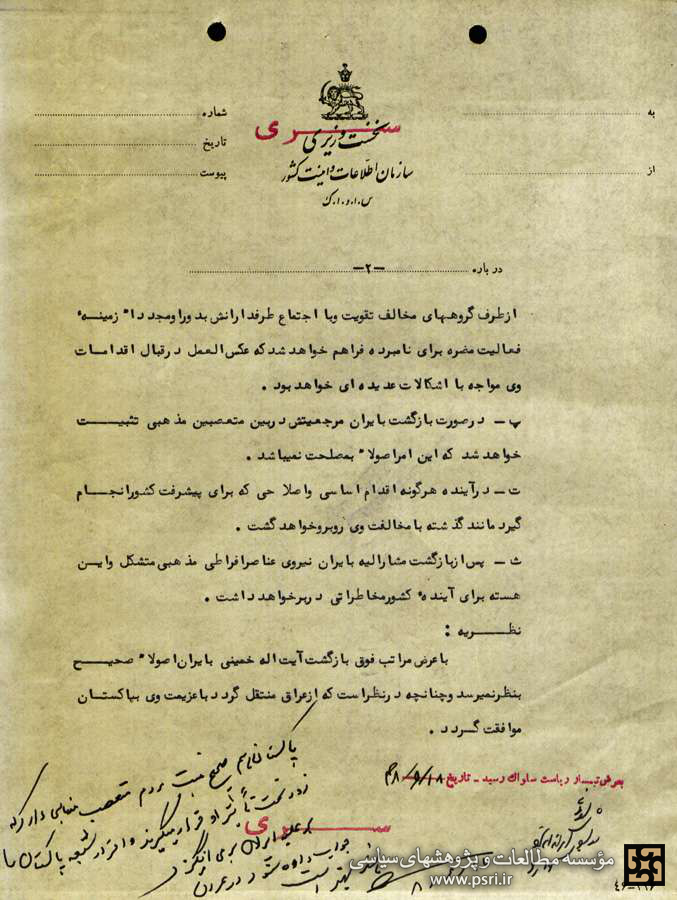 سری
نخست وزیری
سازمان اطلاعات و امنیت کشور
س.ا.و.ا.ک
به
از
شماره
تاریخ
پیوست
درباره -۲-
ازطرف گروههای مخالف تقویت وبا اجتماع طرفدارانش بدورا ومجددا" زمینهٔ
فعالیت مضره برای نامبرده فراهم خواهد شد که عکس العمل درقبال اقدامات
وی مواجه با اشکالات عدیده ای خواهد بود .
پ - درصورت بازگشت بایران مرجعیتش دربین متعصبین مذهبی تثبیت
خواهد شد که این امراصولا" بمصلحت نمیباشد .
ت - درآینده هرگونه اقدام اساسی واصلاحی که برای پیشرفت کشورانجام
گیرد مانند گذشته با مخالفت وی روبروخواهد گشت .
ث - پس ازبازگشت مشارالیه بایران نیروی عناصرافراطی مذهبی متشکل واین
هسته برای آیندهٔ کشورمخاطراتی دربرخواهد داشت .
نظریه :
باعرض مراتب فوق بازگشت آیت اله خمینی بایران اصولا" صحیح
بنظرنمیرسد وچنانچه درنظراست که ازعراق منتقل گردد باعزیمت وی بپاکستان
موافقت گردد .
بعرض تیمسار ریاست ساواک رسید - تاریخ ۴۸/۹/۱۸
پاکستان هم صحیح نیست مردم متعصب مذهبی دارد که
زود تحت تأثیر او قرار میگیرند و افراد شیعه پاکستان را
بر علیه ایران بر می انگیزد
جواب داده شود در عراق
باشد بهتر است
سری
مؤسسه مطالعات و پژوهشهای سیاسی
www.psri.ir